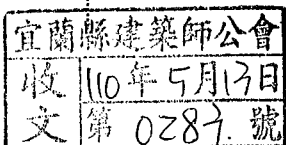 宜蘭縣建築師公會
收文
110年5月13日
第 0283. 號